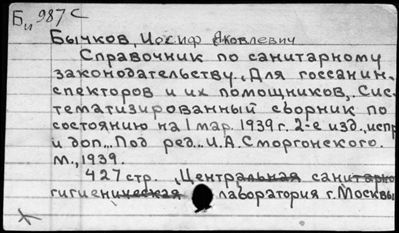 Би 987 С
Бычков, Иосиф Яковлевич
Справочник по санитарному
законодательству. Для госсанин-
спекторов и их помощников. Сис-
тематизированный сборник по
состоянию на 1 мар. 1939 г. 2-е изд., испр
и доп... Под ред... И.А. Сморгонского.
М., 1939.
427 стр. Центральная санитарно
гигиеническая лаборатория г. Москвы